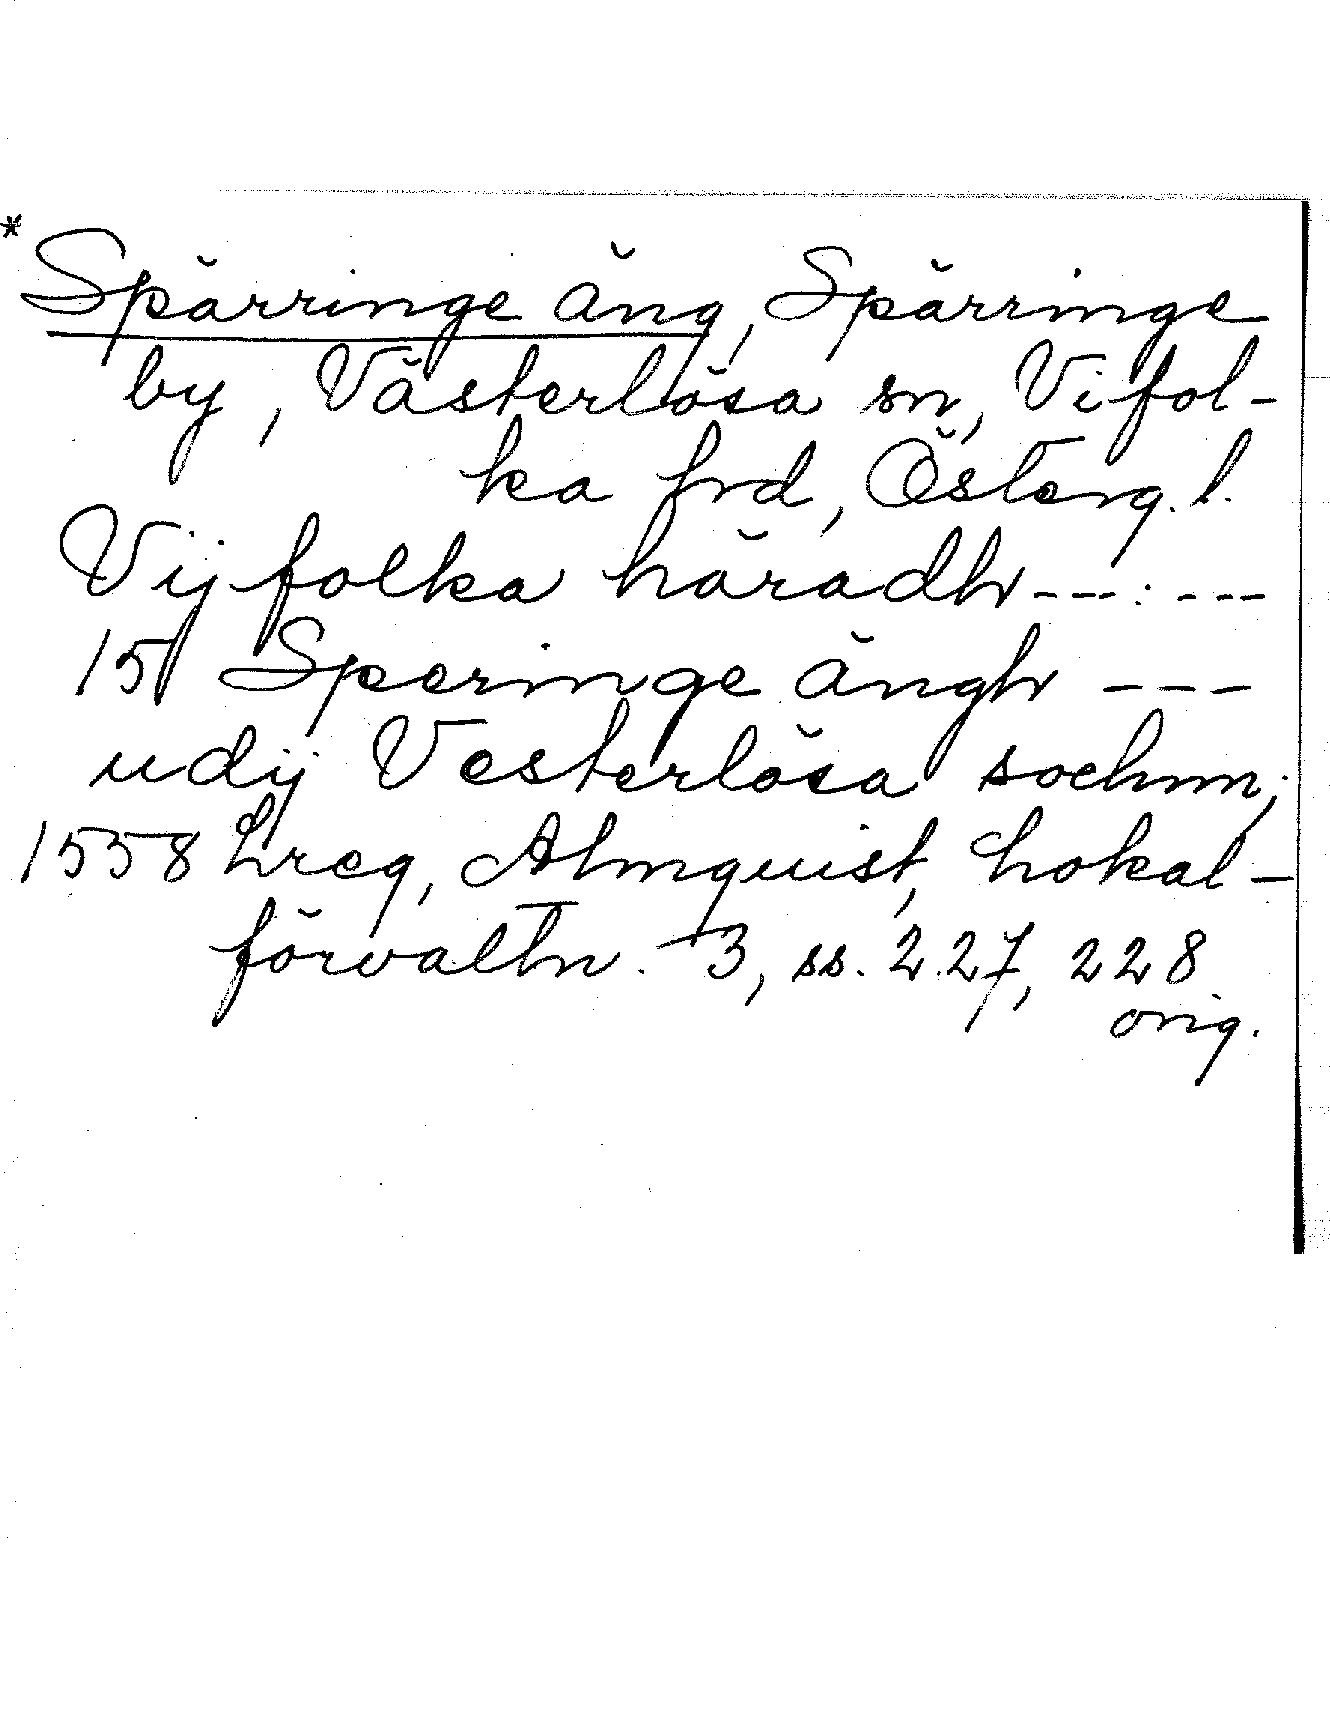 * Spärringe äng, Spärringe
by, Västerlösa sn, Vifol-
ka hrd, Österg. l.
Vijfolka häradh ---:---
15 Speringe ängh ---
udij Vesterlösa sochnn;
1558 Lreg, Almquist, Lokal-
förvaltn. 3, ss. 227, 228
orig.